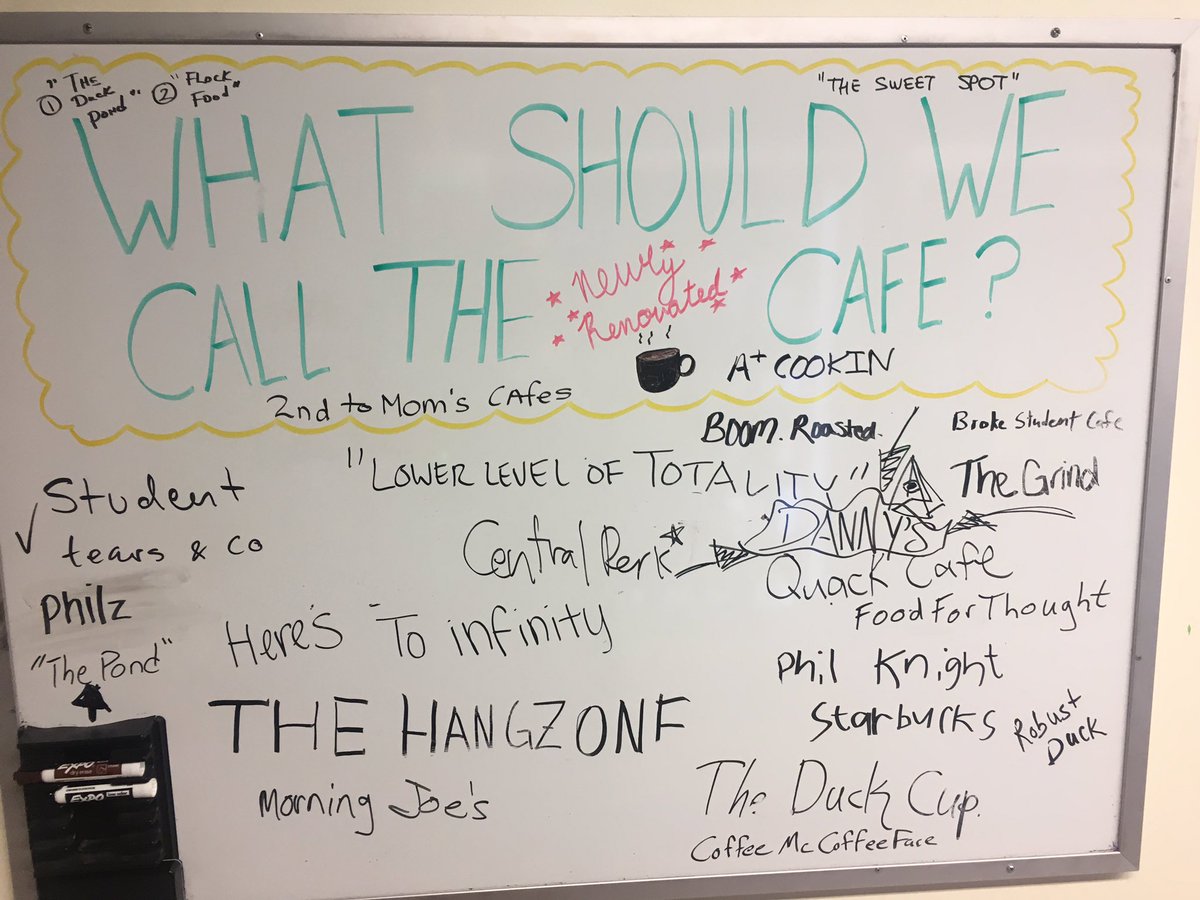 "THE
① Duck
Pond"
② "FLOCK
FOOD"
"THE SWEET SPOT"
WHAT SHOULD WE
CALL THE newly CAFE?
Renovated
A+ COOKIN
2nd to Mom's CAfes
BOOM. Roasted.
Broke Student Cafe
"LOWER LEVEL OF TOTALITY"
The Grind
Student
tears & co
Central Perk
DANNY'S
Quack Cafe
Philz
Food For Thought
Here's To infinity
"The Pond"
Phil Knight
THE HANGZONE
Starbucks
Robust
Duck
Morning Joe's
The Duck Cup
Coffee Mc CoffeeFace
EXPO
EXPO